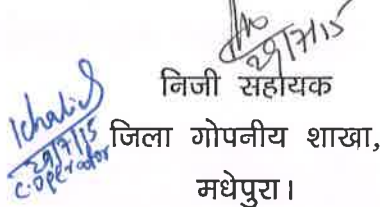 29/7/15
निजी सहायक
Khalid
29/7/15
C. Operator
जिला गोपनीय शाखा,
मधेपुरा।